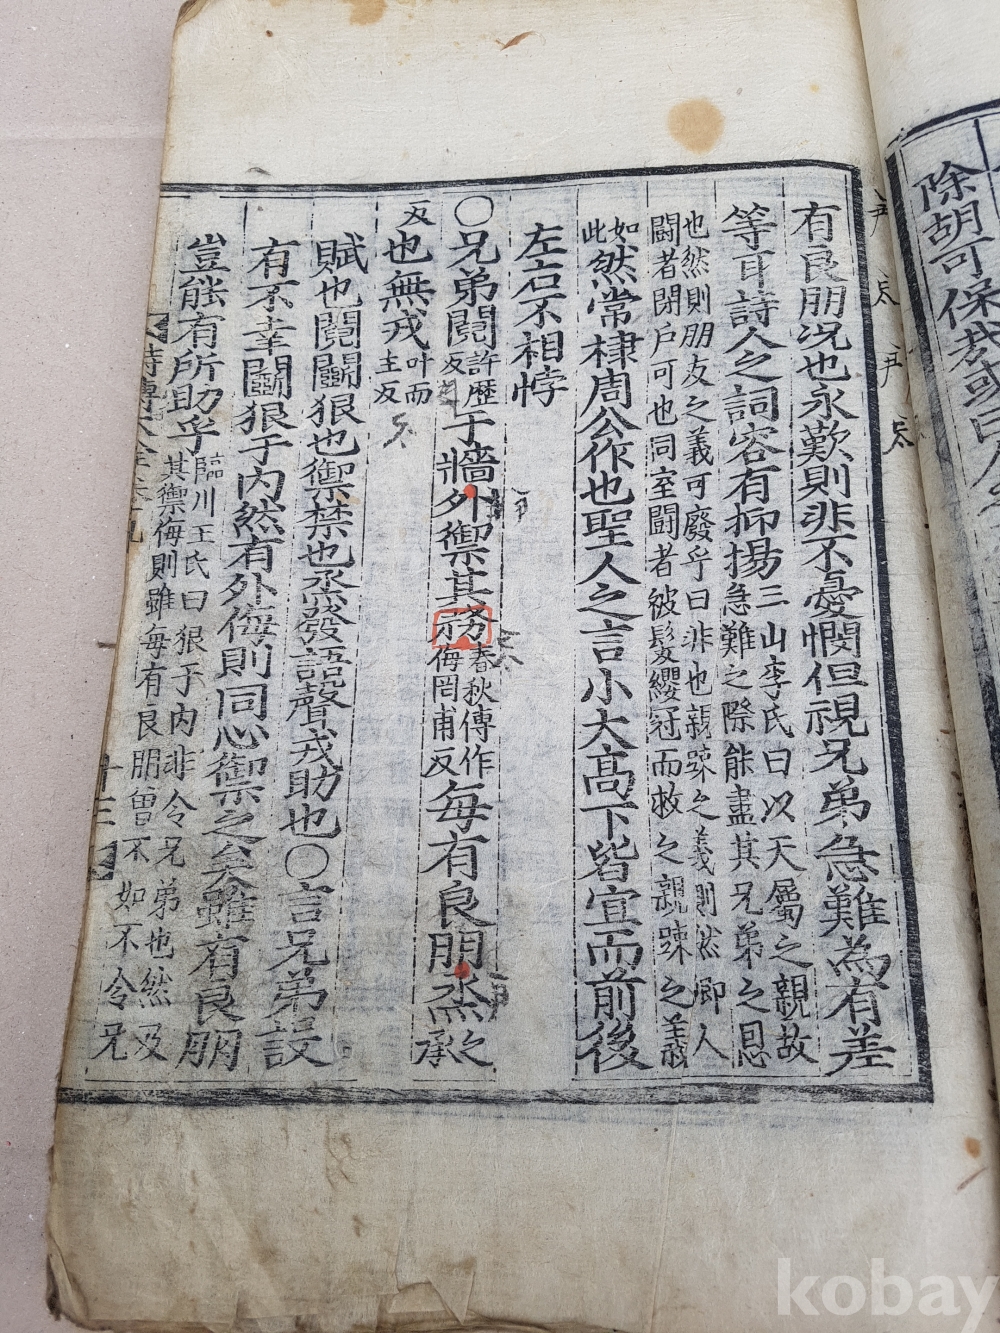 有良朋况也永歎則非不憂憫但視兄弟急難為有差
等耳詩人之詞容有抑揚三山李氏曰以天屬之親故
急難之際能盡其兄弟之恩
也然則朋友之義可廢乎曰非也親踈之義則然郷人
鬪者閉戶可也同室鬪者被髮纓冠而救之親踈之義
如此
然常棣周公作也聖人之言小大高下皆宜而前後
左右不相悖
○兄弟鬩許歷反于牆外禦其務春秋傳作侮罔甫反每有良朋烝之承
反也無戎叶而主反
賦也鬩鬬狠也禦禁也烝發語聲戎助也○言兄弟設
有不幸鬬狠于內然有外侮則同心禦之矣雖有良朋
豈能有所助乎臨川王氏曰狠于內非令兄弟也然及
其禦侮則雖每有良朋曾不如不令兄
詩傳大全卷之九
十三
除胡可保哉或曰人
kobay